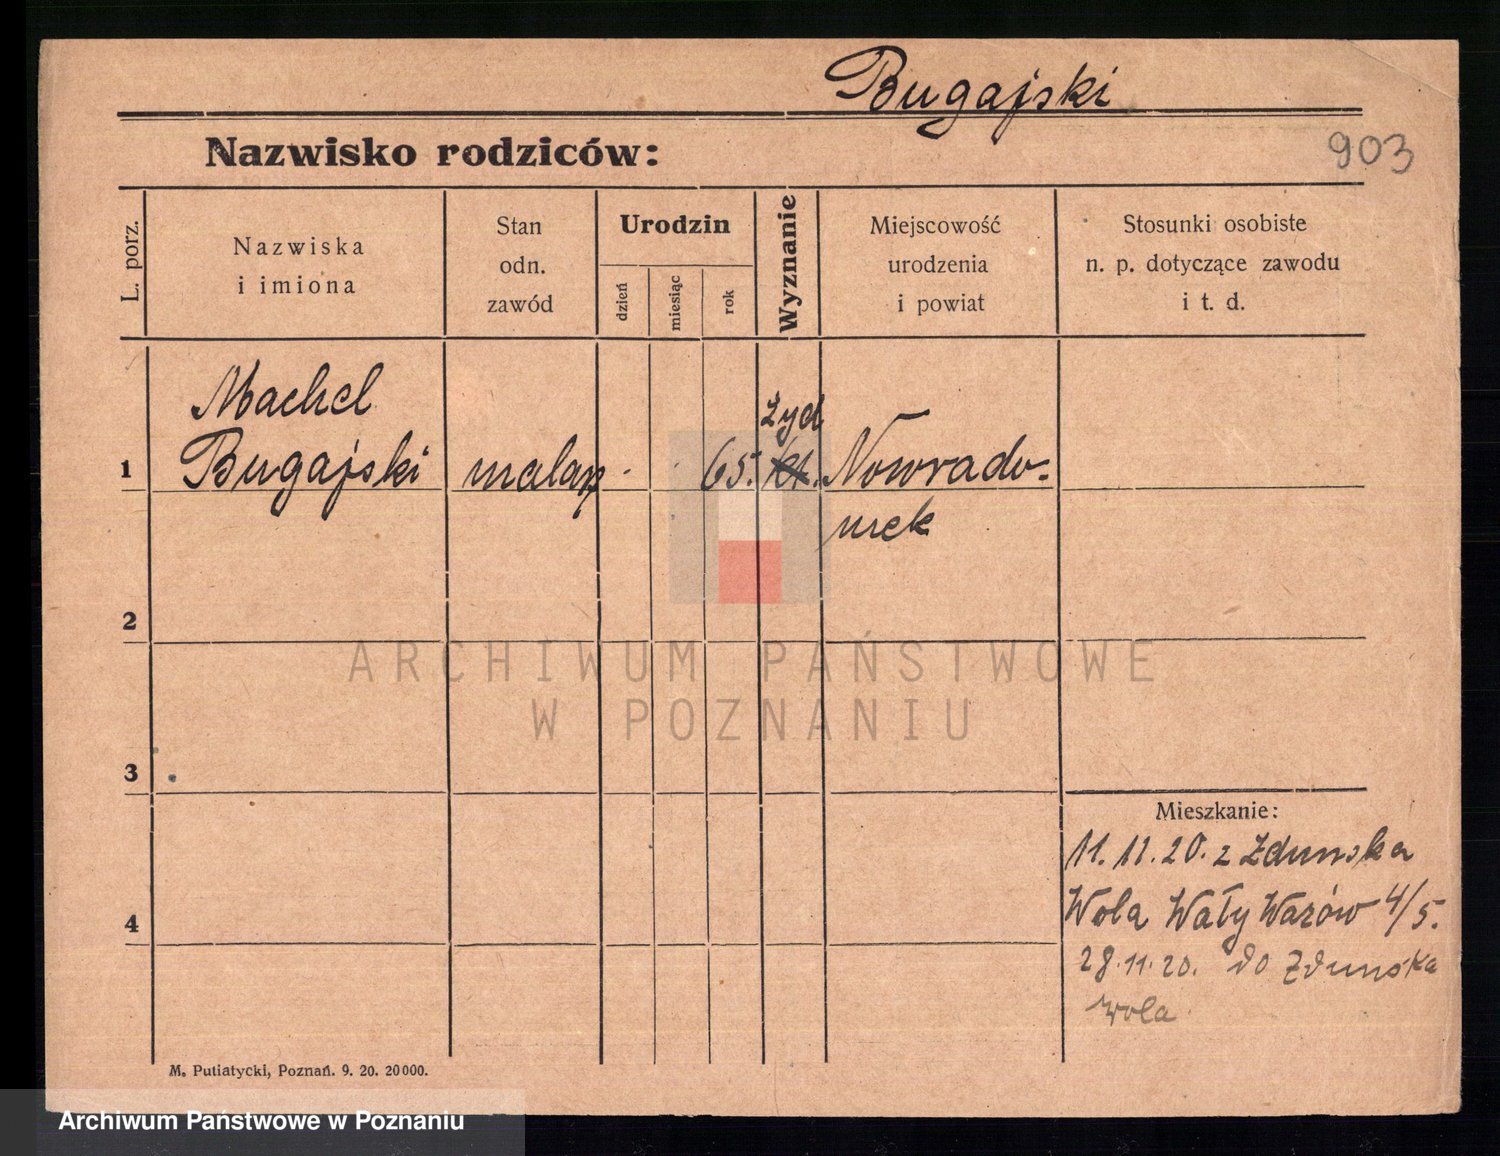 Bugajski
Nazwisko rodziców:
903
L. porz.
Nazwiska
i imiona
Stan
odn.
zawód
Urodzin
dzień
miesiąc
rok
Wyznanie
Miejscowość
urodzenia
i powiat
Stosunki osobiste
n. p. dotyczące zawodu
i t. d.
1
Machel
Bugajski
malarz
65.
żyd
kt.
Nowrado-
mek
2
3
4
Mieszkanie:
11. 11. 20. z Zdunska
Wola Wały Wazów 4/5.
28. 11. 20. do Zdunska
Wola
M. Putiatycki, Poznań. 9. 20. 20000.
ARCHIWUM PAŃSTWOWE
W POZNANIU
Archiwum Państwowe w Poznaniu